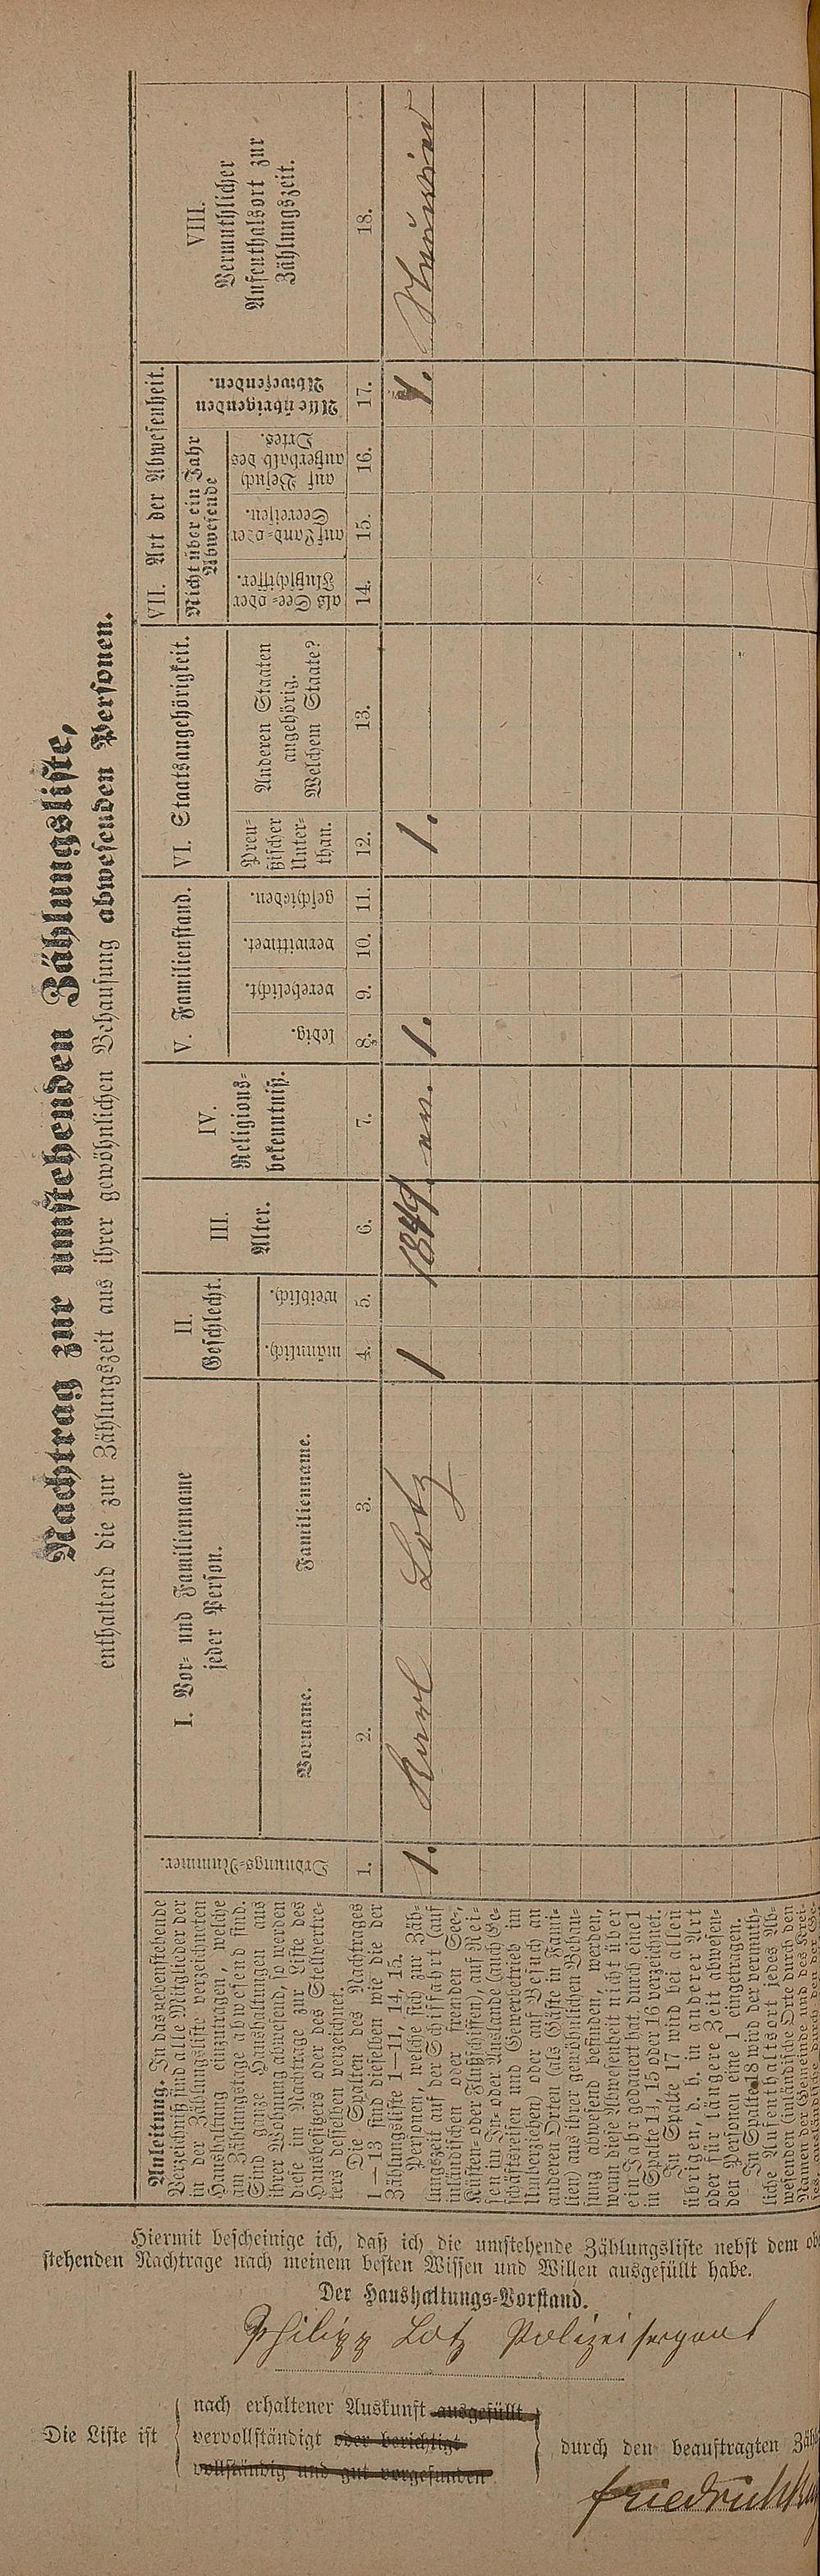 Nachtrag zur umstehenden Zählungsliste,
enthaltend die zur Zählungszeit aus ihrer gewöhnlichen Behausung abwesenden Personen.
Anleitung. In das nebenstehende
Verzeichniß sind alle Mitglieder der
in der Zählungsliste verzeichneten
Haushaltung einzutragen, welche
am Zählungstage abwesend sind.
Sind ganze Haushaltungen aus
ihrer Wohnung abwesend, so werden
diese im Nachtrage zur Liste des
Hausbesitzers oder des Stellvertre-
ters desselben verzeichnet.
Die Spalten des Nachtrages
1—13 sind dieselben wie die der
Zählungsliste 1—11, 14, 15.
Personen, welche sich zur Zäh-
lungszeit auf der Schiffahrt (auf
inländischen oder fremden See-,
Küsten- oder Flußschiffen), auf Rei-
sen im In- oder Auslande (auch Ge-
schäftsreisen und Gewerbetrieb im
Umherziehen) oder auf Besuch an
anderen Orten (als Gäste in Fami-
lien) aus ihrer gewöhnlichen Behau-
sung abwesend befinden, werden,
wenn diese Abwesenheit nicht über
ein Jahr gedauert hat durch eine 1
in Spalte 14, 15 oder 16 verzeichnet.
In Spalte 17 wird bei allen
übrigen, d. h. in anderer Art
oder für längere Zeit abwesen-
den Personen eine 1 eingetragen.
In Spalte 18 wird der vermuth-
liche Aufenthaltsort jedes Ab-
wesenden (inländische Orte durch den
Namen der Gemeinde und des Krei-
ses, ausländische durch den der Ge-
Ordnungs-Nummer.
1.
I. Vor- und Familienname
jeder Person.
Vorname.
2.
Familienname.
3.
II.
Geschlecht.
männlich.
4.
weiblich.
5.
III.
Alter.
6.
IV.
Religions-
bekenntniß.
7.
V. Familienstand.
ledig.
8.
verehelicht.
9.
verwittwet.
10.
geschieden.
11.
VI. Staatsangehörigkeit.
Preu-
ßischer
Unter-
than.
12.
Anderen Staaten
angehörig.
Welchem Staate?
13.
VII. Art der Abwesenheit.
Nicht über ein Jahr
Abwesende
als See- oder
Flußschiffer.
14.
auf Land- oder
Seereisen.
15.
auf Besuch
außerhalb des
Ortes.
16.
Alle übrigen
Abwesenden.
17.
VIII.
Vermuthlicher
Aufenthalsort zur
Zählungszeit.
18.
1. Karl Lotz 1 1849. ev. 1. 1. 1.
Hiermit bescheinige ich, daß ich die umstehende Zählungsliste nebst dem
stehenden Nachtrage nach meinem besten Wissen und Willen ausgefüllt habe.
Der Haushaltungs-Vorstand.
Philipp Lotz Polizeisergant
Die Liste ist
nach erhaltener Auskunft ausgefüllt
vervollständigt oder berichtigt
vollständig und gut vorgefunden
durch den beauftragten
Friedrich